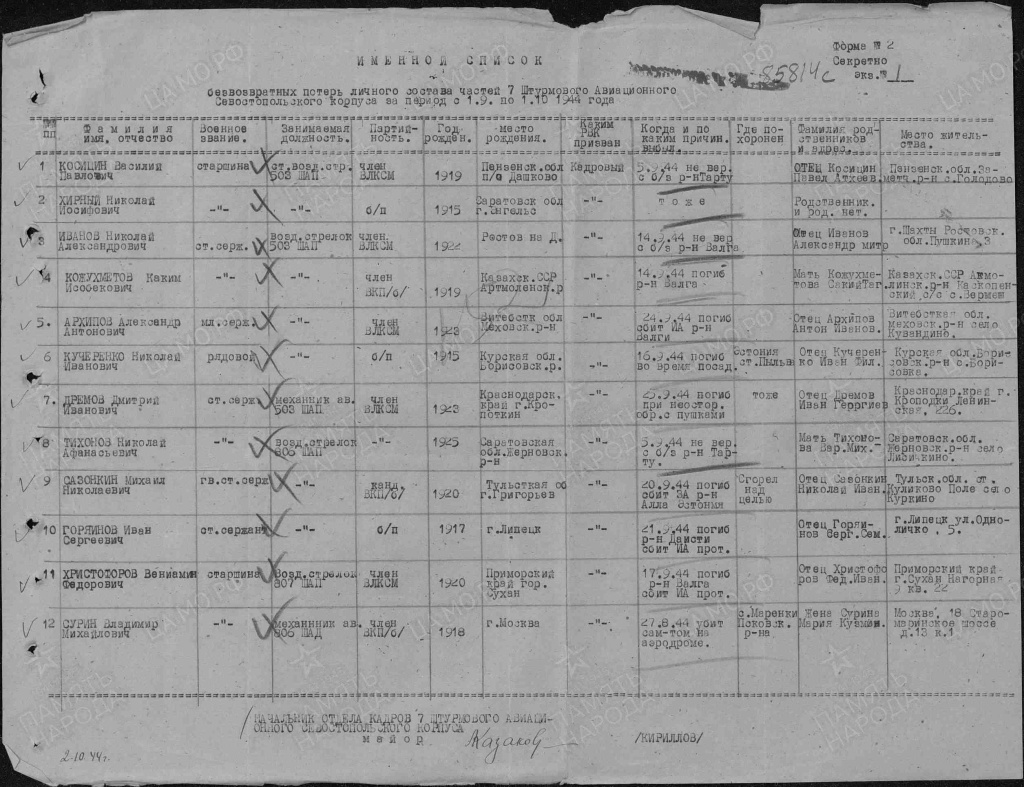 Форма № 2
Секретно
экз.№ 1
85814с
ИМЕННОЙ СПИСОК
безвозвратных потерь личного состава частей 7 Штурмового Авиационного
Севостопольского корпуса за период с 1.9. по 1.10 1944 года
пп Фамилия имя, отчество Военное звание. Занимаемая должность. Партий-ность. Год рожден. место рождения. Каким РВК призван Когда и по каким причин. выбыл. Где по-хоронен Фамилия род-ственников и адрес. Место житель-ства.
1 КОСИЦИН Василий старшина ст.возд.стр. член Пензенск.обл Кадровый 5.9.44 не вер. ОТЕЦ Косицин Пензенск.обл.За-
Павлович 503 ШАП ВЛКСМ 1919 п/о Дашково с б/з р-нТарту Павел Атхеев. метч.р-н с.Голодово
2 ХИРНЫЙ Николай Саратовск обл тоже Родственник.
Иосифович -"- -"- б/п 1915 г.Энгельс -"- и род. нет.
3 ИВАНОВ Николай возд.стрелок член. Ростов на Д. 14.9.44 не вер Отец Иванов г.Шахты Ростовск.
Александрович ст.серж. 503 ШАП ВЛКСМ 1922 -"- с б/з р-н Валга Александр митр обл.Пушкина 3
4 КОЖУХМЕТОВ Каким -"- -"- член Казахск.ССР -"- 14.9.44 погиб Мать Кожухме- Казахск.ССР Акмо-
Исобекович ВКП/б/ 1919 Артмоленск.р р-н Валга това СакийТаг. линск.р-н Каскопен-
ский с/с с.Вермеш
5. АРХИПОВ Александр мл.серж. -"- член Витебстк обл -"- 24.9.44 погиб Отец Архипов Витебсткая обл.
Антонович ВЛКСМ 1923 Меховск.р-н сбит ИА р-н Антон Иванов. меховск.р-н село
Валги Кувандино.
6 КУЧЕРЕНКО Николай рядовой -"- б/п 1915 Курская обл. 16.9.44 погиб Эстония Отец Кучерен- Курская обл.Бори-
Иванович Борисовск.р. -"- во время посад. ст.Пыльв ко Иван Фил. совск.р-н с.Бори-
совка.
7. ДРЕМОВ Дмитрий ст.серж. механник ав. член Краснодарск. 25.9.44 погиб тоже Отец Дремов Краснодар.край г.
Иванович 503 ШАП ВЛКСМ 1923 край г.Кро- -"- при неостор. Иван Георгиев Кроподки Ленин-
поткин обр.с пушками ская, 226.
8 ТИХОНОВ Николай -"- возд.стрелок -"- 1925 Саратовская -"- 5.9.44 не вер. Мать Тихоно- Саратовск.обл.
Афанасьевич 806 ШАП обл.Жерновск. с б/з р-н Тар- ва Вар.Мих. Жерновск.р-н село
р-н ту. Лисичкино.
9 САЗОНКИН Михаил гв.ст.серж -"- канд. Тульсткая об -"- 20.9.44 погиб Сгорел Отец Сазонкин Тульск.обл. ст.
Николаевич ВКП/б/ 1920 г.Григорьев сбит ЗА р-н над Николай Иван. Куликово Поле село
Алла Эстония целью Куркино
10 ГОРЯИНОВ Иван ст.сержант -"- б/п 1917 г.Липецк -"- 21.9.44 погиб Отец Горяи- г.Липецк ул.Одно-
Сергеевич р-н Даисти нов Серг.Сем. личко , 5.
сбит ИА прот.
11 ХРИСТОФОРОВ Вениамин старшина Возд.стрелок член Приморский 17.9.44 погиб Отец Христофо Приморский край
Федорович 807 ШАП ВЛКСМ 1920 край Гор. -"- р-н Валга ров Фед.Иван. г.Сухан Нагорная
Сухан сбит ИА прот. 9 кв. 22
12 СУРИН Владимир -"- механнник ав. член г.Москва -"- 27.8.44 убит с.Маренки Жена Сурина Москва, 18 Старо-
Михайлович 806 ШАД ВКП/б/ 1918 сам-том на Псковск. Мария Кузмин. маринское шоссе
аэродроме. р-на д.13 к.1
НАЧАЛЬНИК ОТДЕЛА КАДРОВ 7 ШТУРМОВОГО АВИАЦИ-
ОННОГО СЕВОСТОПОЛЬСКОГО КОРПУСА
майор Казаков /КИРИЛЛОВ/
2.10.44г.